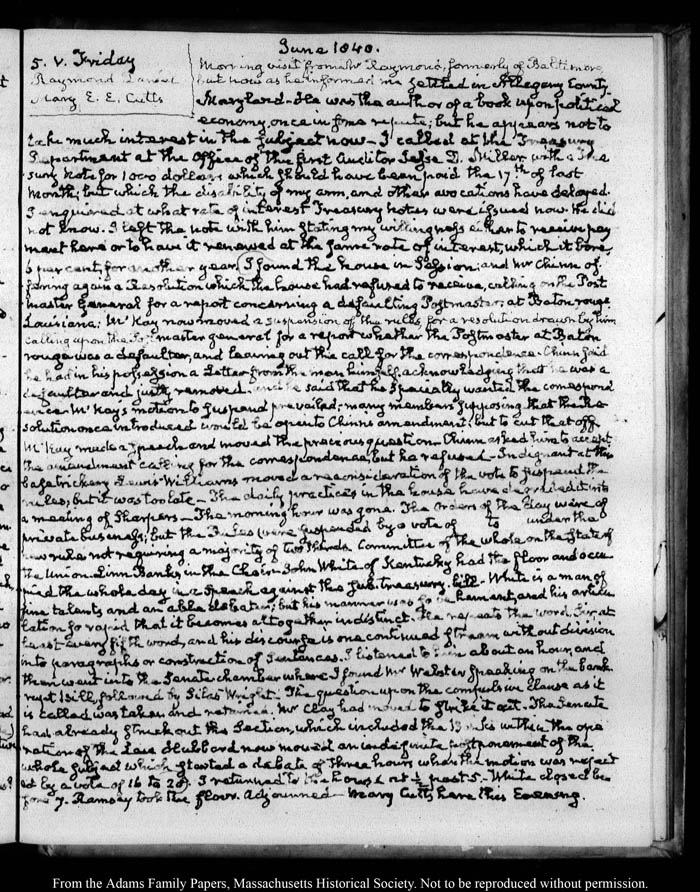 June 1840.
5. V. Friday
Raymond Daniel
Mary E. E. Cutts
Morning visit from Mr Raymond, formerly of Baltimore
but now as he informed me settled in Allegany County
Maryland— He was the author of a book upon political
economy, once in some repute; but he appears not to
take much interest in the subject now— I called at the Treasury
Department at the Office of the first Auditor Jesse D. Miller with a Trea
sury Note for 1000 dollars which should have been paid the 17th of last
Month, but which the disability of my arm, and other avocations have delayed.
I enquired at what rate of interest Treasury notes were issued now. He did
not know. I left the note with him stating my willingness either to receive pay
ment here or to have it renewed at the same rate of interest, which it bore,
6 per cent, for another year. I found the house in Session; and Mr Chinn of
fering again a Resolution which the house had refused to receive, calling on the Post
master General for a report concerning a defaulting Postmaster, at Baton rouge
Louisiana: McKay now moved a suspension of the rules, for a resolution drawn by him
calling upon the Postmaster general for a report whether the Postmaster at Baton
rouge was a defaulter, and leaving out the call for the correspondence. Chinn said
he had in his possession a Letter from the man himself, acknowledging that he was a
defaulter and justly removed. and he said that he specially wanted the correspond
ence. McKay's motion to suspend prevailed; many members supposing that the Re
solution once introduced would be open to Chinn's amendment, but to cut that off
McKay made a speech and moved the previous question. Chinn asked him to accept
the amendment calling for the correspondence, but he refused— Indignant at this
base trickery Lewis Williams moved a reconsideration of the vote to suspend the
rules; but it was too late— The daily practices in the house have degraded it into
a meeting of Sharpers— The morning hour was gone. The Orders of the day were of
private business; but the Rules were suspended by a vote of to under the
new rule not requiring a majority of two thirds. Committee of the whole on the State of
the Union. Linn Banks in the Chair— John White of Kentucky had the floor and occu
pied the whole day in a speech against the Sub-treasury bill— White is a man of
fine talents and an able debater; but his manner was so vehement, and his articu
lation so rapid that it becomes altogether indistinct. He repeats the word Sir at
least every fifth word, and his discourse is one continued stream without division
into paragraphs or construction of sentences. I listened to him about an hour, and
then went into the Senate chamber where I found Mr Webster speaking on the bank
rupt Bill, followed by Silas Wright. The question upon the compulsive clause as it
is called was taken and retained. Mr Clay had moved to strike it out. The Senate
had already struck out the Section, which included the Banks within the ope
ration of the Law. Hubbard now moved an indefinite postponement of the
whole subject which started a debate of three hours when the motion was reject
ed by a vote of 16 to 20. I returned to the house at ½ past 5— White closed be
fore 7. Ramsey took the floor. Adjourned— Mary Cutts here this Evening.
From the Adams Family Papers, Massachusetts Historical Society. Not to be reproduced without permission.